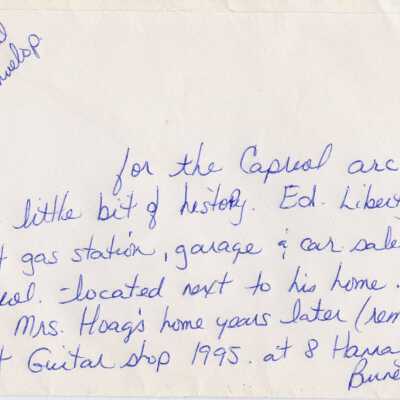 for the Capreol arc
little bit of history. Ed. Libert
gas station, garage & car sale
eol. - located next to his home.
Mrs. Hoag's home years later (rem
Guitar shop 1995. at 8 Hanna